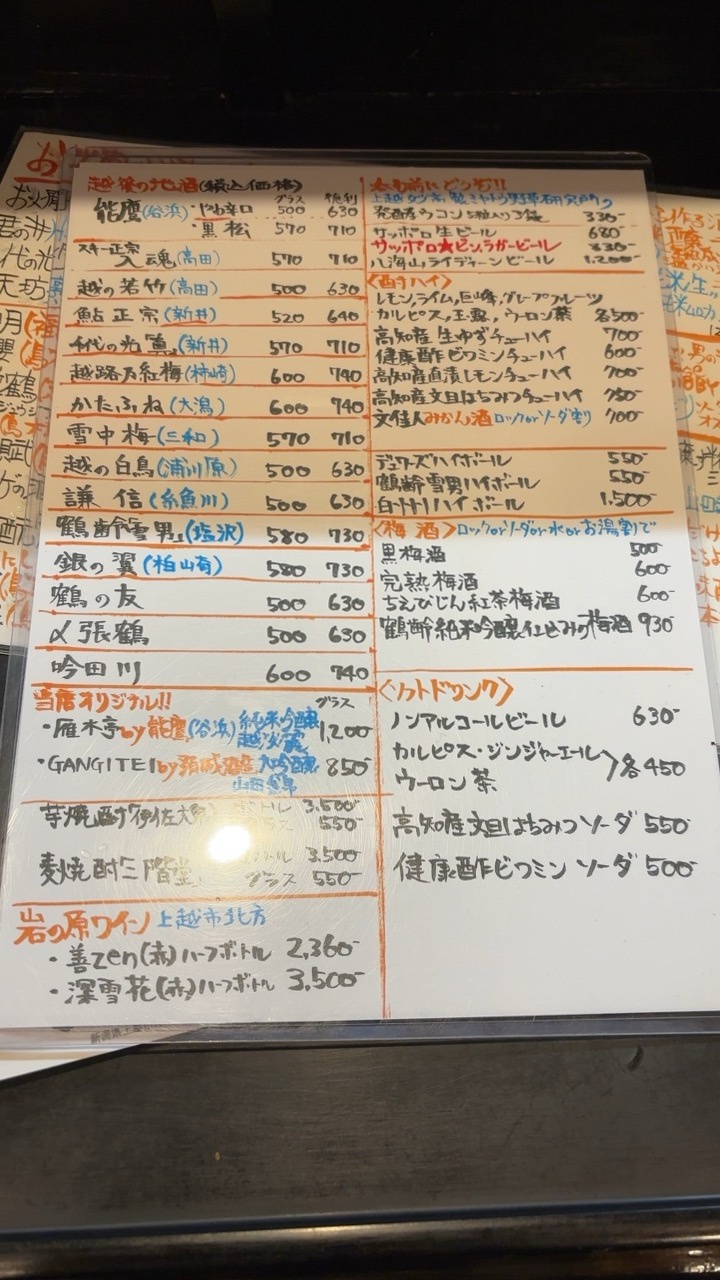 越後の地酒(税込価格) グラス 徳利
能鷹(谷浜)・やわ辛口 500 630
・黒松 570 710
スキー正宗
入魂(高田) 570 710
越の若竹(高田) 500 630
鮎正宗(新井) 520 640
千代の光 真(新井) 570 710
越路乃紅梅(柿崎) 600 740
かたふね(大潟) 600 740
雪中梅(三和) 570 710
越の白鳥(浦川原) 500 630
謙信(糸魚川) 500 630
鶴齢雪男(塩沢) 580 730
銀の翼(柏崎) 580 730
鶴の友 500 630
〆張鶴 500 630
吟田川 600 740
当店オリジナル!! グラス
・雁木亭by能鷹(谷浜)純米吟醸 1,200
越淡麗
・GANGITEI by 頚城酒造 大吟醸 850-
山田錦
芋焼酎「伊佐大泉」 ボトル 3,500-
グラス 550-
麦焼酎「二階堂」 ボトル 3,500
グラス 550-
岩の原ワイン 上越市北方
・善Zen(赤)ハーフボトル 2,360-
・深雪花(赤)ハーフボトル 3,500-
お酒前にどうぞ!!
発酵ウコン 330-
サッポロ生ビール 680-
サッポロ★ビンラガービール 830-
八海山ライディーンビール 1,200-
〈酎ハイ〉
レモン,ライム,巨峰,グレープフルーツ
カルピス,玉露,ウーロン茶 各500-
高知産 生ゆずチューハイ 700-
健康酢ビワミンチューハイ 600-
高知産直漬レモンチューハイ 700-
高知産文旦はちみつチューハイ 750-
文佳人みかん酒 ロックorソーダ割 700-
デュワーズハイボール 550-
鶴齢雪男ハイボール 550-
白州ハイボール 1,500-
〈梅酒〉ロックorソーダor水orお湯割で
黒梅酒 500-
完熟梅酒 600-
ちえびじん紅茶梅酒 600-
鶴齢純米吟醸仕込みの梅酒 930-
〈ソフトドリンク〉
ノンアルコールビール 630-
カルピス・ジンジャーエール
ウーロン茶 各450
高知産文旦はちみつソーダ 550-
健康酢ビワミンソーダ 500-